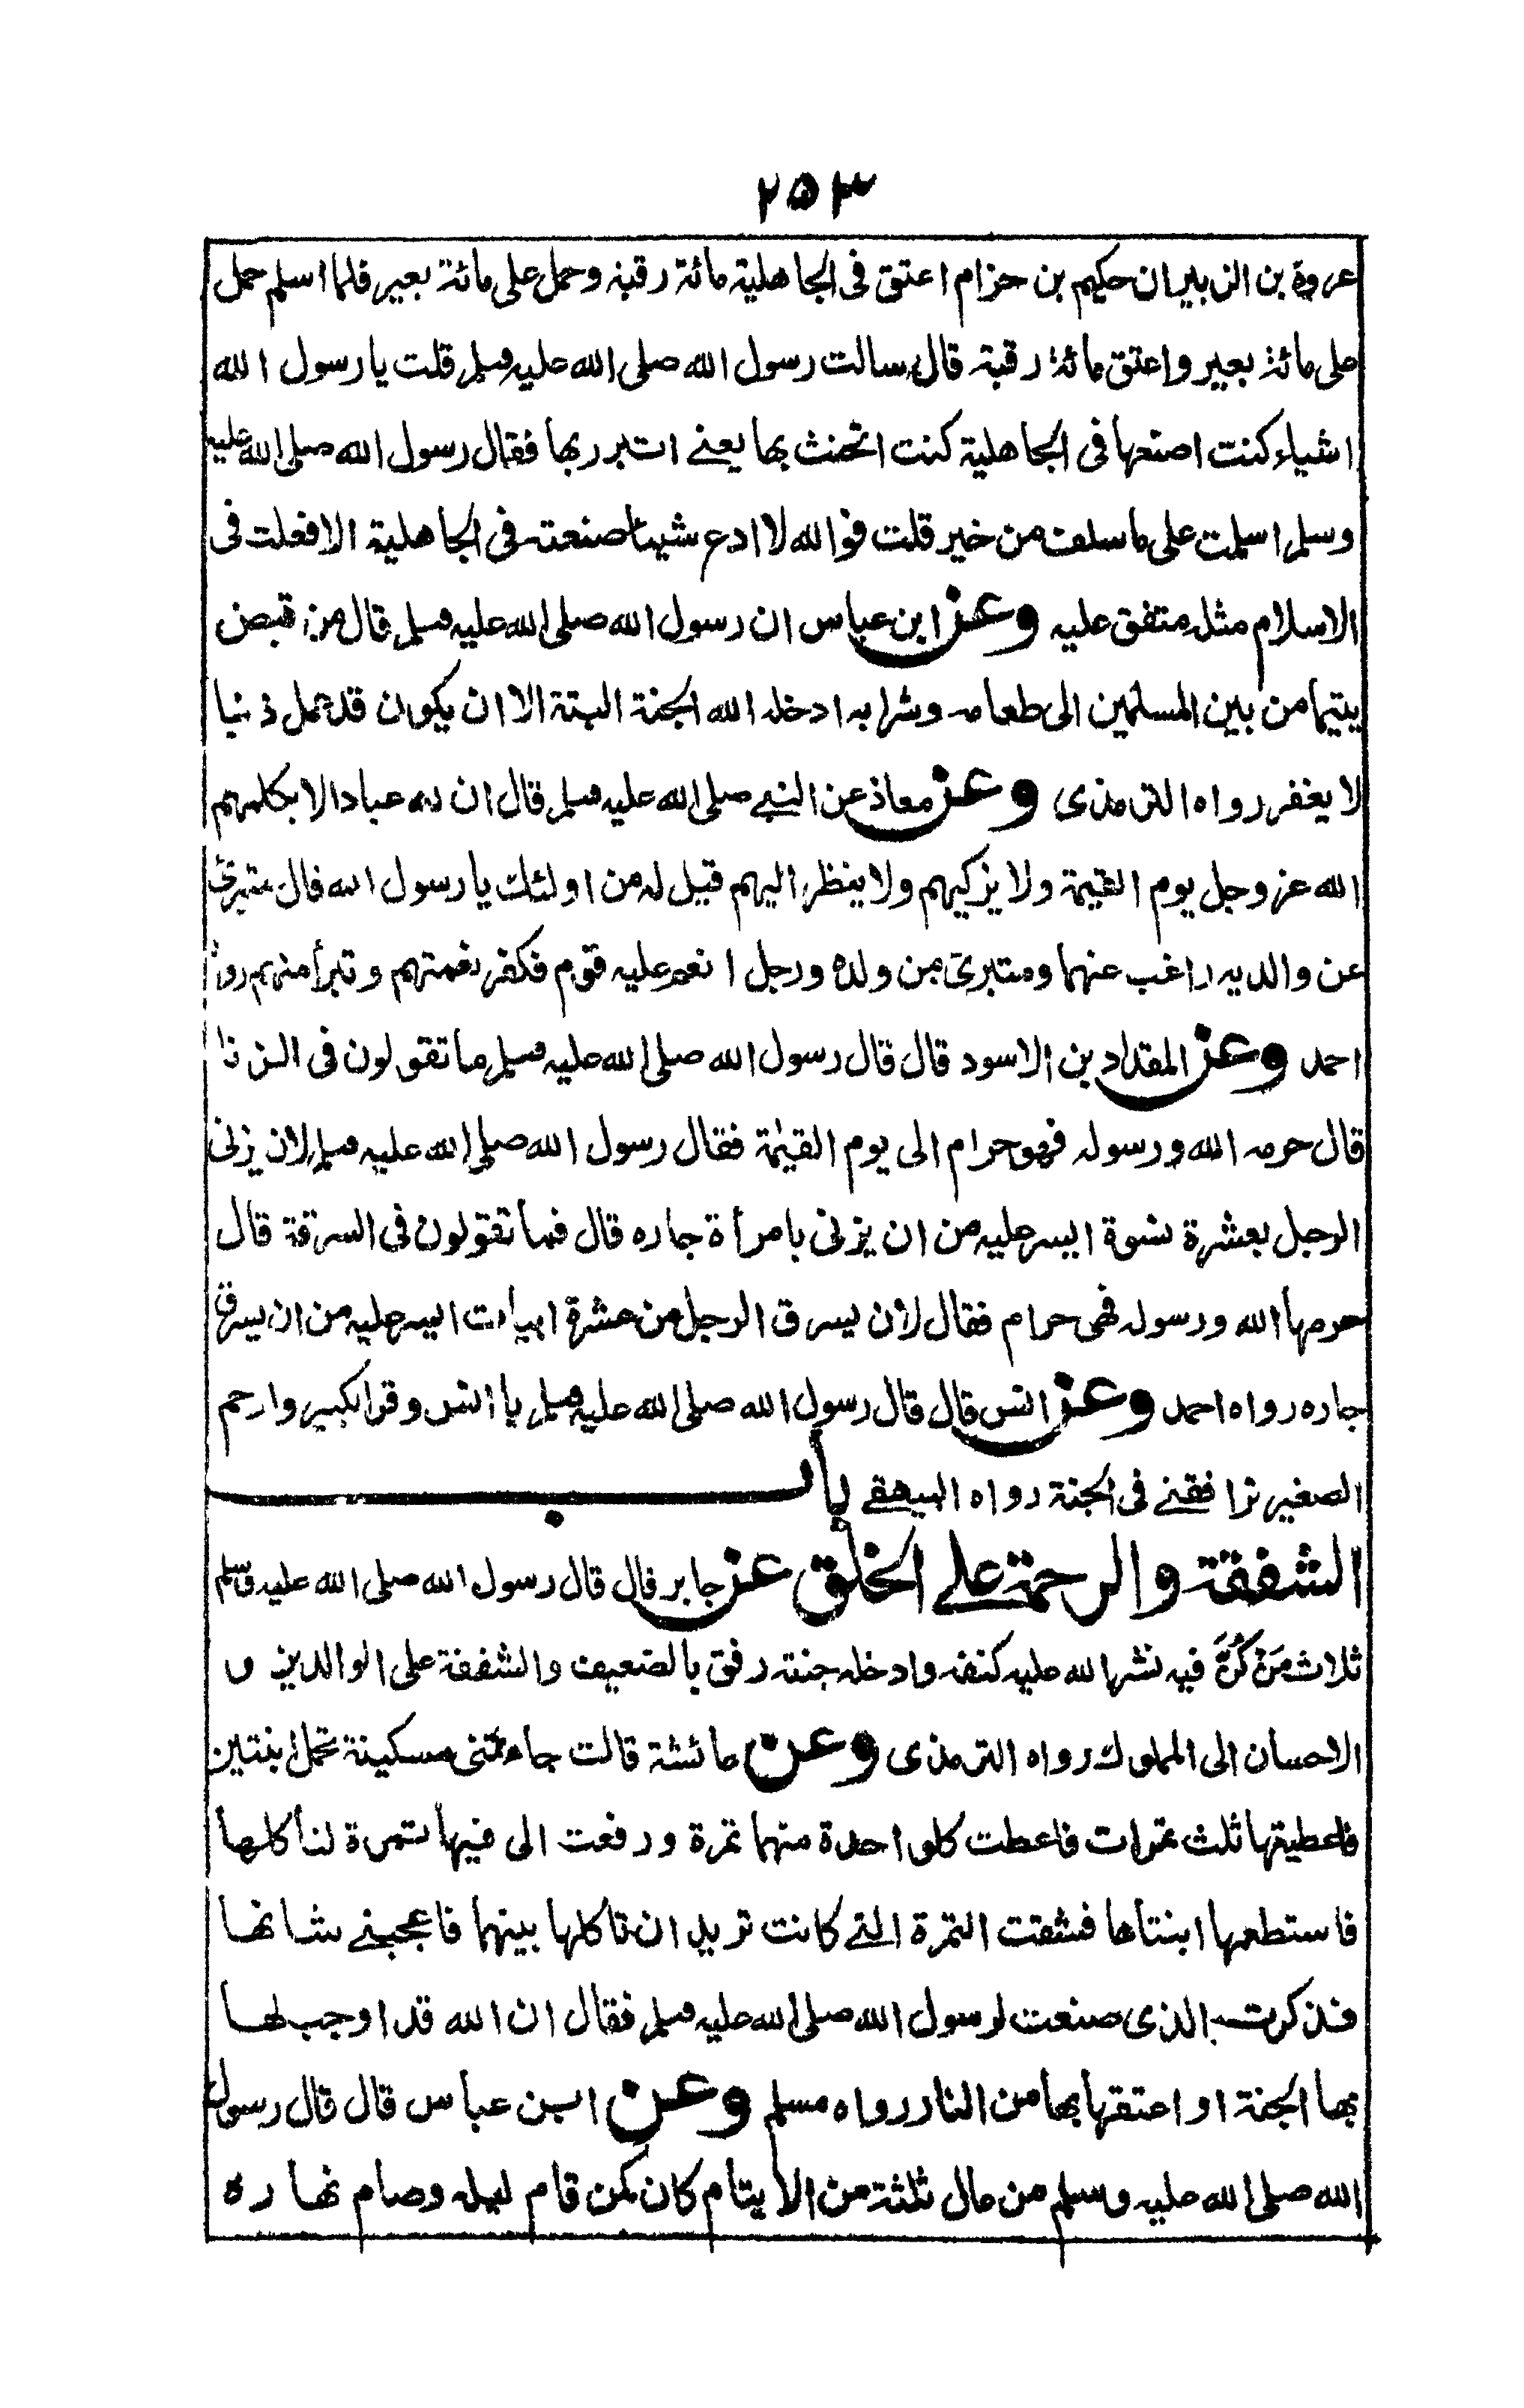 ٢٥٣
عروة بن الزبيران حكيم بن حزام اعتق فى الجاهلية مائة رقبة وحمل على مائة بعير فلما اسلم حمل
على مائة بعير واعتق مائة رقبة قال سالت رسول الله صلى الله عليه وسلم قلت يا رسول الله
اشياء كنت اصنعها فى الجاهلية كنت اتحنث بها يعنے اتبرر بها فقال رسول الله صلى الله عليه
وسلم اسلمت على ما سلف من خير قلت فوالله لا ادع شيئا صنعته فى الجاهلية الا فعلت فى
الاسلام مثله متفق عليه وعن ابن عباس ان رسول الله صلى الله عليه وسلم قال من قبض
يتيما من بين المسلمين الى طعامه وشرابه ادخله الله الجنة البتة الا ان يكون قد عمل ذنبا
لا يغفر رواه الترمذى وعن معاذ عن النبے صلى الله عليه وسلم قال ان لله عبادا لا يكلمهم
الله عز وجل يوم القيمة ولا يزكيهم ولا ينظر اليهم قيل له من اولئك يا رسول الله قال متبرئ
عن والديه راغب عنهما ومتبرئ من ولده ورجل انعم عليه قوم فكفر نعمتهم وتبرأ منهم رواه
احمد وعن المقداد بن الاسود قال قال رسول الله صلى الله عليه وسلم ما تقولون فى الزنا
قال حرمه الله ورسوله فهو حرام الى يوم القيٰمة فقال رسول الله صلى الله عليه وسلم لان يزنى
الرجل بعشرة نسوة ايسر عليه من ان يزنى بامرأة جاره قال فما تقولون فى السرقة قال
حرمها الله ورسوله فهى حرام فقال لان يسرق الرجل من عشرة ابيات ايسر عليه من ان يسرق
جاره رواه احمد وعن انس قال قال رسول الله صلى الله عليه وسلم يا انس وقر الكبير وارحم
الصغير ترافقنے فى الجنة رواه البيهقے باب
الشفقة والرحمة علے الخلق عن جابر قال قال رسول الله صلى الله عليه وسلم
ثلاث مَنْ كُنَّ فيه نشر الله عليه كنفه وادخله جنته رفق بالضعيف والشفقة على الوالدين و
الاحسان الى المملوك رواه الترمذى وعن عائشة قالت جاءتنى مسكينة تحمل ابنتين
فاعطيتها ثلث تمرات فاعطت كلواحدة منهما تمرة ورفعت الى فيها تمرة لتأكلها
فاستطعمها ابنتاها فشقت التمرة التے كانت تريد ان تاكلها بينهما فاعجبنے شانها
فذكرت الذى صنعت لرسول الله صلى الله عليه وسلم فقال ان الله قد اوجب لها
بها الجنة او اعتقها بها من النار رواه مسلم وعن ابن عباس قال قال رسول
الله صلى الله عليه وسلم من عال ثلثة من الايتام كان كمن قام ليله وصام نهاره